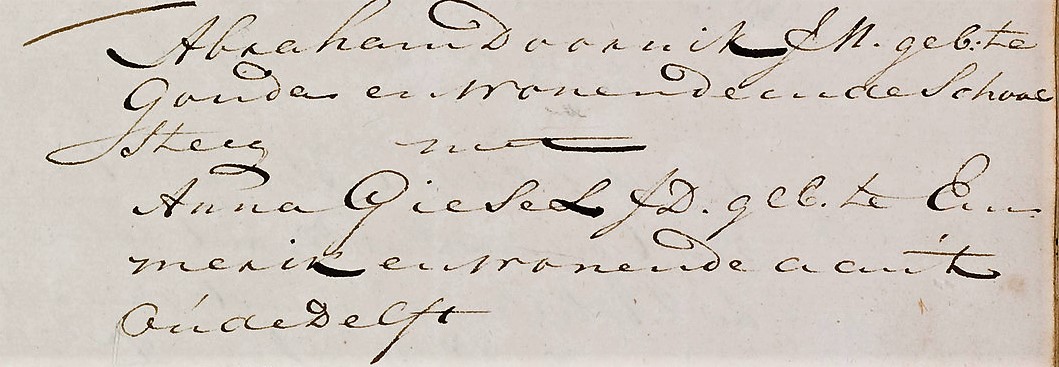 Abraham Doornik J M. geb: te
Gouda en wonende in de School
Steeg met
Anna Giesel J D. geb. te Em-
merik en wonende aan 't
Oude Delft